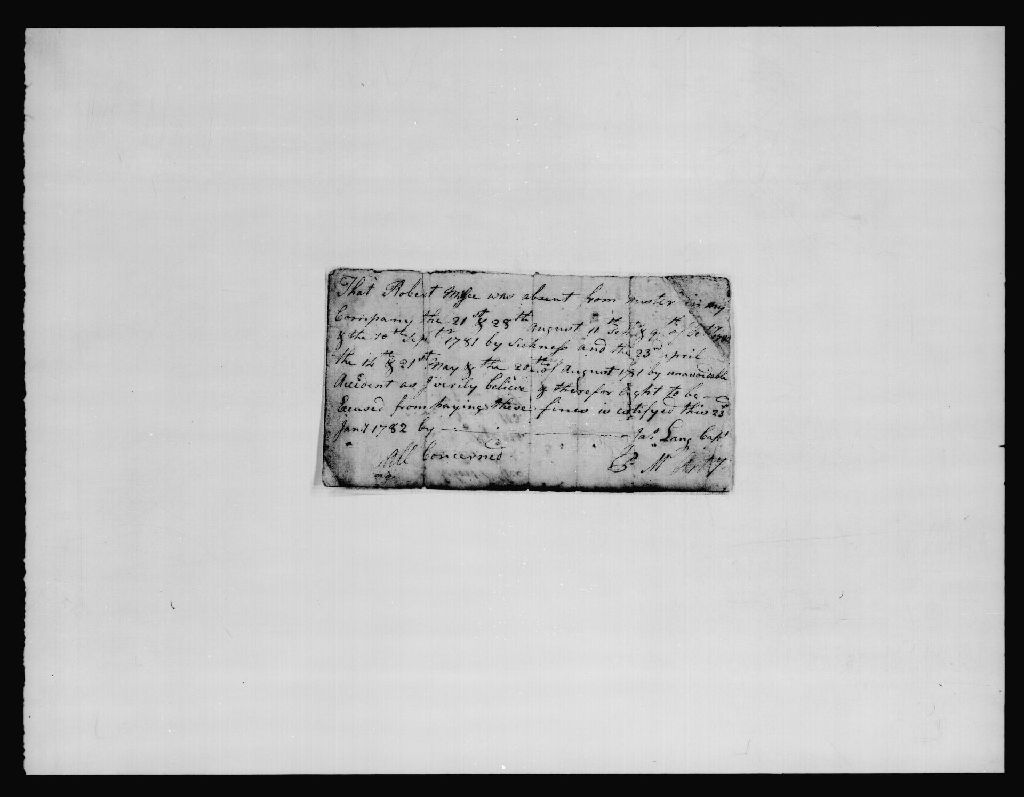 That Robert McGee was absent from muster in my
Company the 21st & 28th August 11th Sept & 9th of
& the 10th Sept 1781 by Sickness and the 23d april
the 14th & 21st May & the 20th of August 1781 by unavoidable
Accident as I verily believe & therefor ought to be
Excused from paying these fines is certifyed this 23d
Jany 1782 by — Jas. Lang Capt
All Concerned